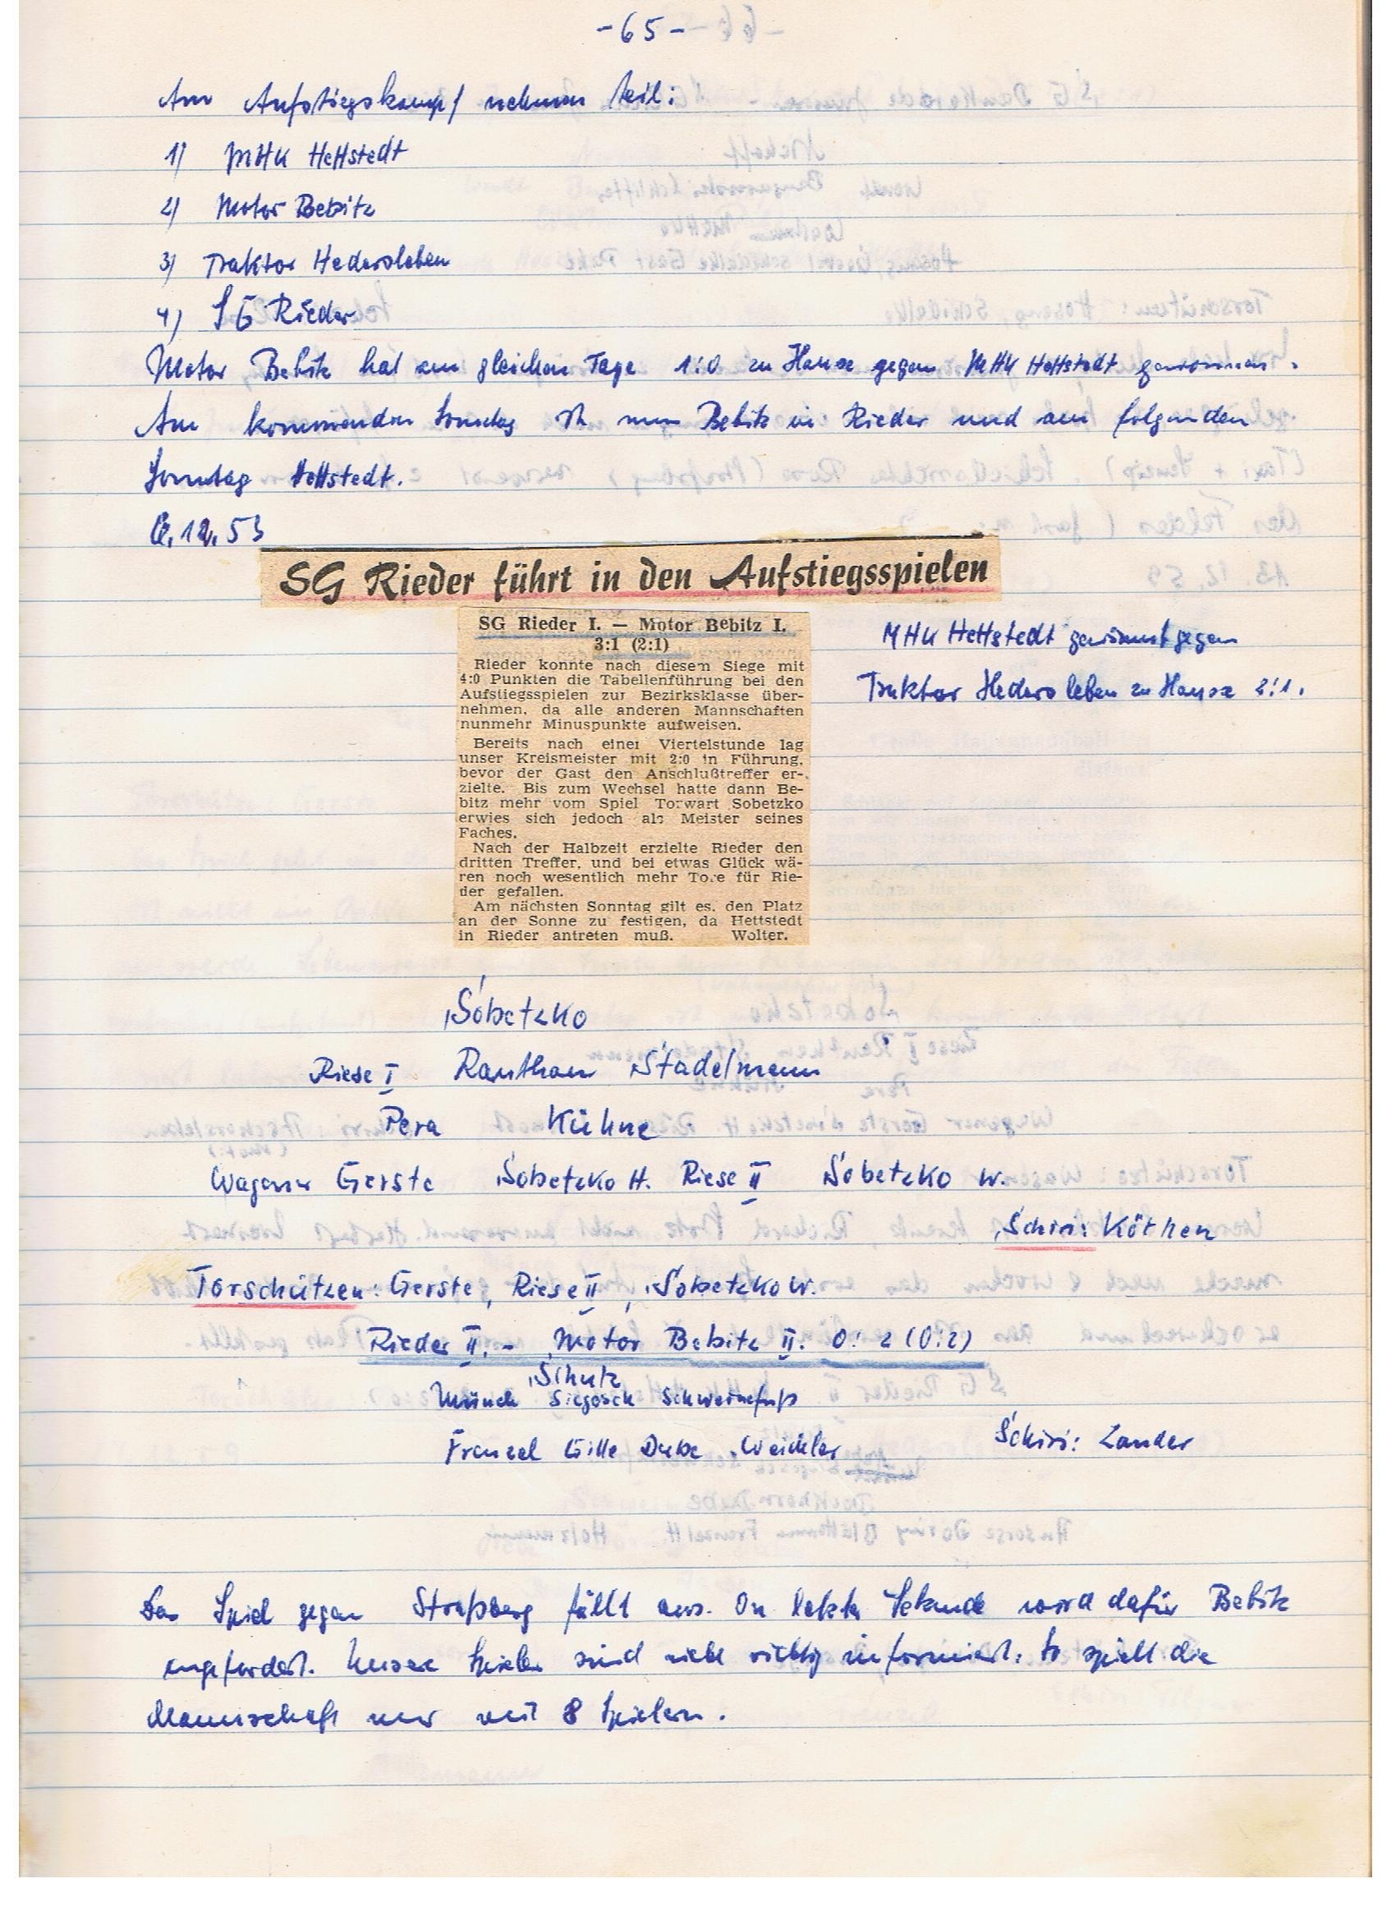 -65-
Am Aufstiegskampf nehmen teil:
1) MHK Hettstedt
2) Motor Bebitz
3) Traktor Hedersleben
4) SG Rieder
Motor Bebitz hat am gleichen Tage 1:0 zu Hause gegen MHK Hettstedt gewonnen.
Am kommenden Sonntag ist nun Bebitz in Rieder und am folgenden
Sonntag Hettstedt.
6.12.53
SG Rieder führt in den Aufstiegsspielen
SG Rieder I. — Motor Bebitz I.
3:1 (2:1)
Rieder konnte nach diesem Siege mit
4:0 Punkten die Tabellenführung bei den
Aufstiegsspielen zur Bezirksklasse über-
nehmen, da alle anderen Mannschaften
nunmehr Minuspunkte aufweisen.
Bereits nach einer Viertelstunde lag
unser Kreismeister mit 2:0 in Führung,
bevor der Gast den Anschlußtreffer er-
zielte. Bis zum Wechsel hatte dann Be-
bitz mehr vom Spiel Torwart Sobetzko
erwies sich jedoch als Meister seines
Faches.
Nach der Halbzeit erzielte Rieder den
dritten Treffer, und bei etwas Glück wä-
ren noch wesentlich mehr Tore für Rie-
der gefallen.
Am nächsten Sonntag gilt es, den Platz
an der Sonne zu festigen, da Hettstedt
in Rieder antreten muß. Wolter.
MHK Hettstedt gewinnt gegen
Traktor Hedersleben zu Hause 2:1.
Sobetzko
Riese I Ranthan Stadelmann
Pera Kühne
Wagener Gerste Sobetzko H. Riese II Sobetzko W.
Schiri: Köthen
Torschützen: Gerste, Riese II, Sobetzko W.
Rieder II. - Motor Bebitz II. 0:2 (0:2)
Schutz
Münch Siegosch Schweinefuß
Frenzel Gille Dube Weichler
Schiri: Zander
Das Spiel gegen Straßberg fällt aus. In letzter Sekunde wird dafür Bebitz
angefordert. Unsere Spieler sind nicht richtig informiert. So spielt die
Mannschaft nur mit 8 Spielern.